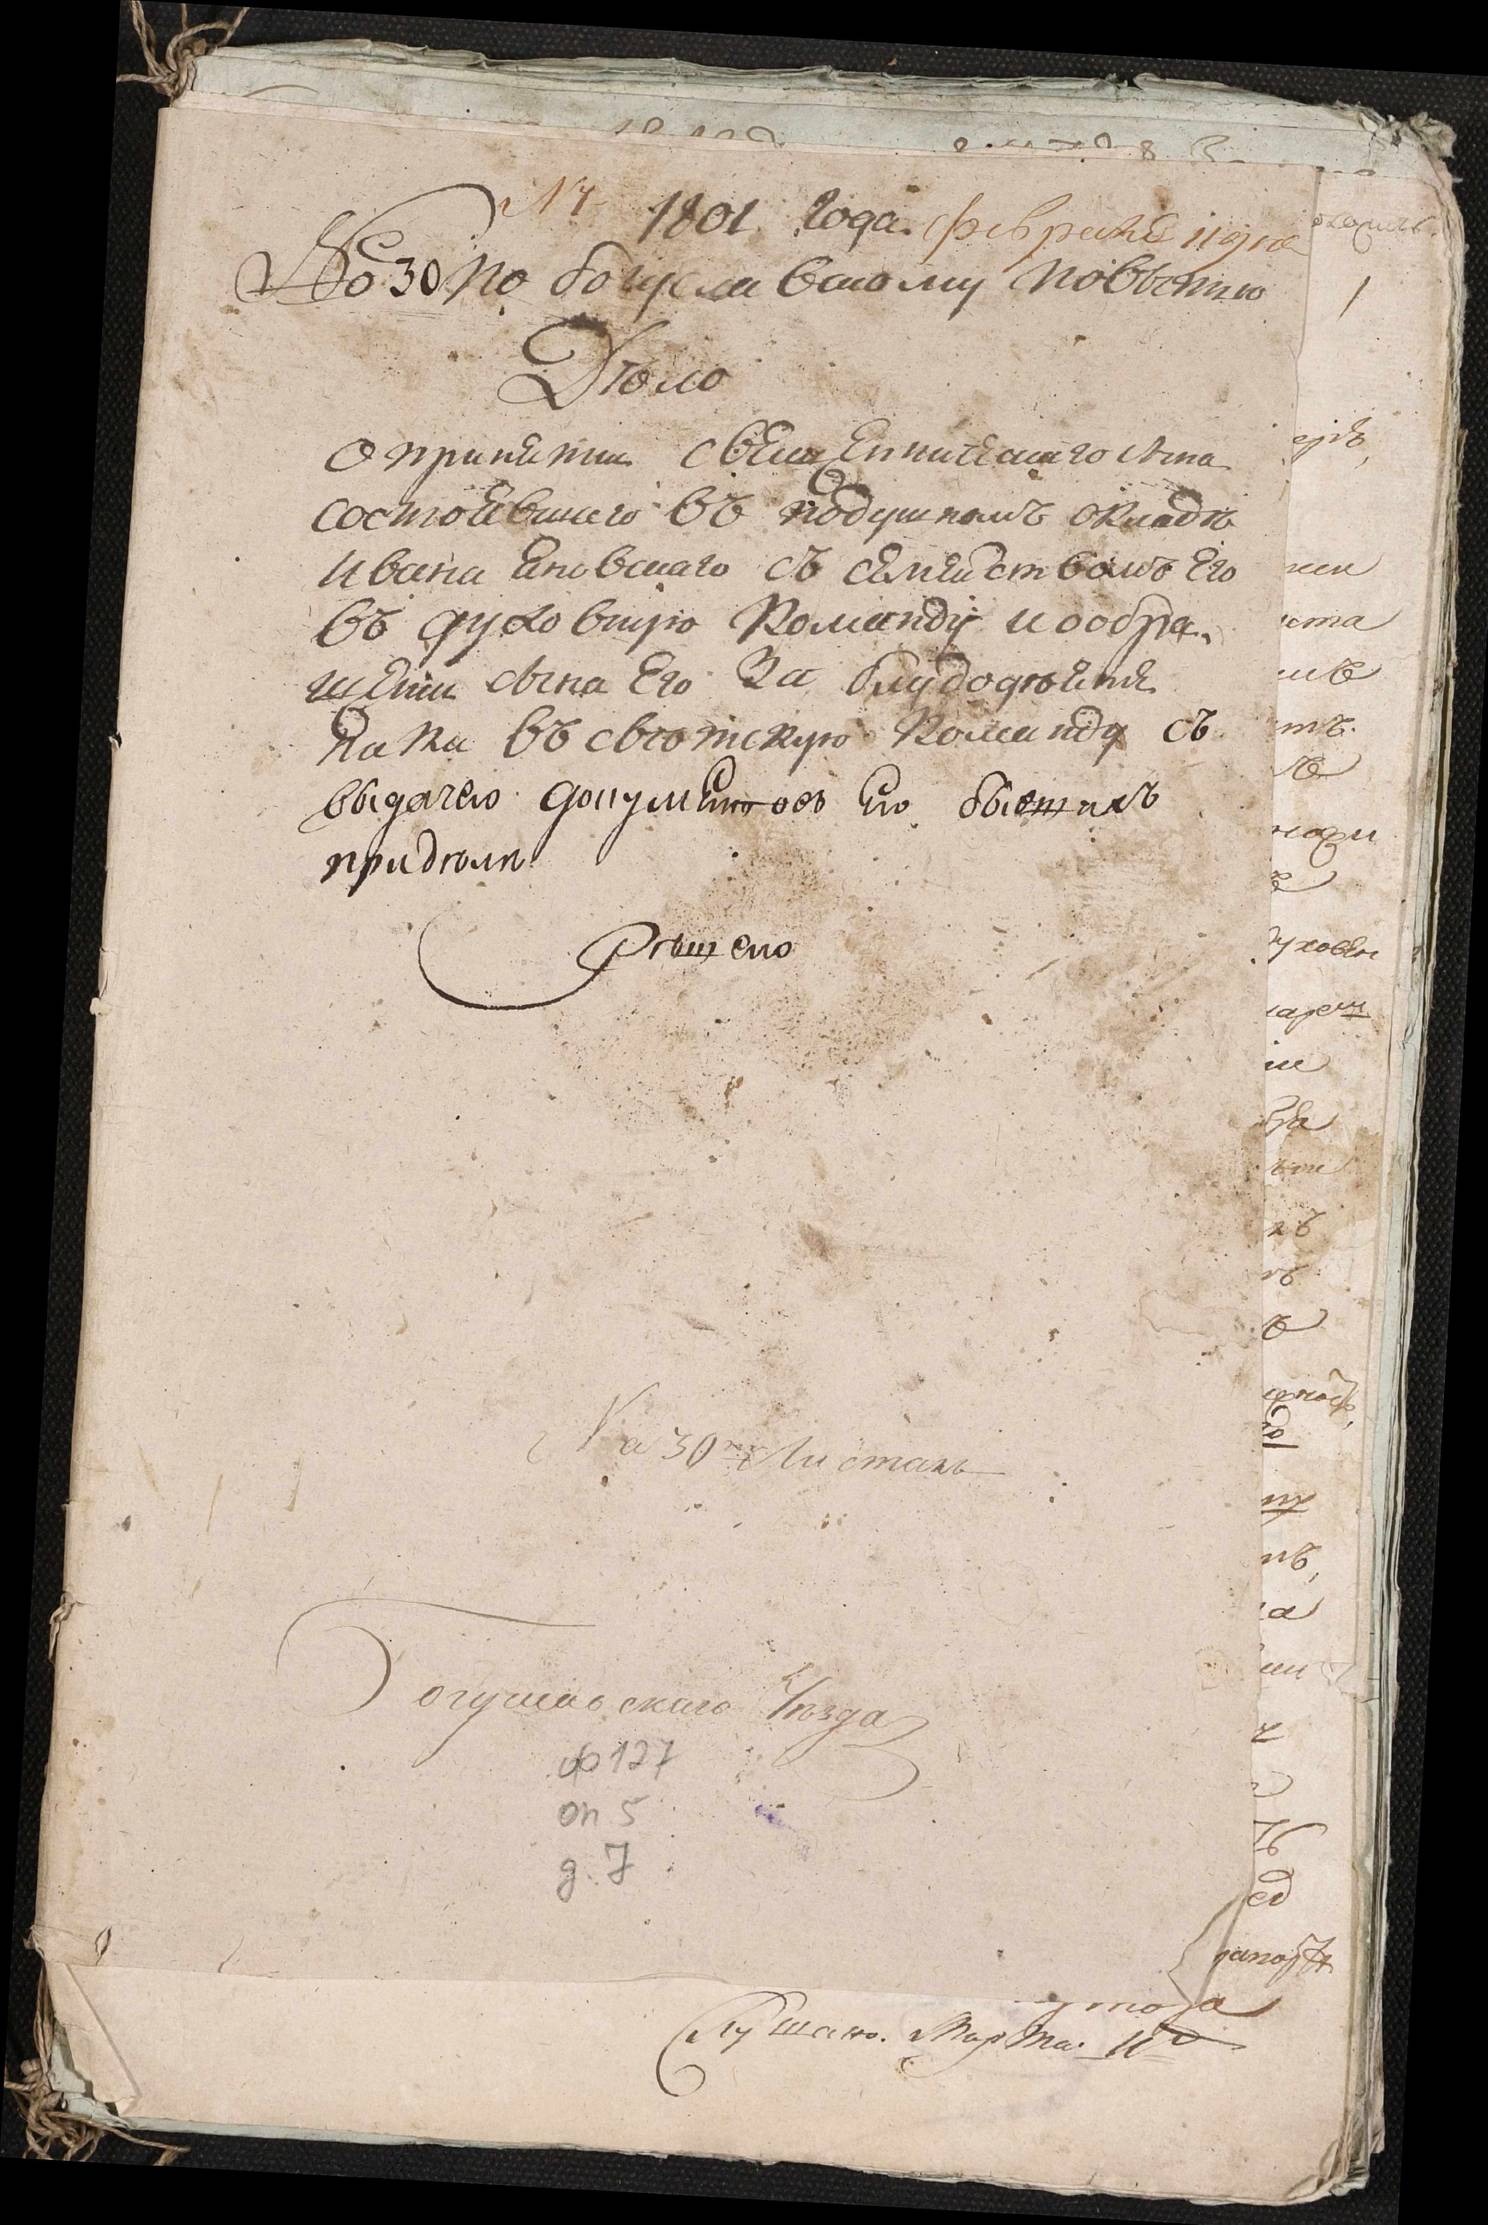 № 4 1801 года февраля 11 дня
№ 30 по богуславскому повѣтию
Дѣло
о принятии священническаго сына
состоявшаго въ подушномъ окладѣ
Ивана яновскаго съ семействомъ его
въ духовную команду и о обра-
щении сына его за блудодѣяние
паки въ свѣтскую команду съ
выдачею документовъ его бывшихъ
придѣлѣ
Рѣшено
На 30 листахъ
Богуславскаго Уѣзда
ф 127
оп 5
д. 7
Слушано. Марта. 11
1